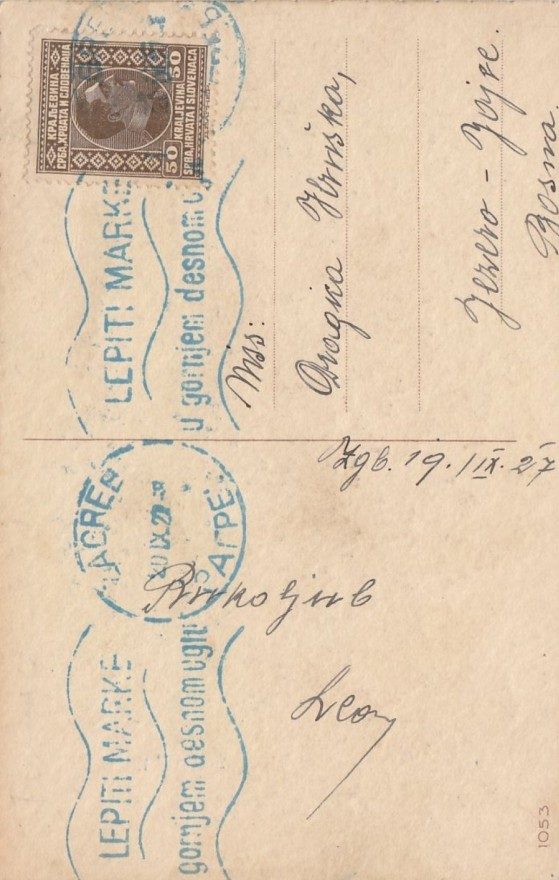 КРАЉЕВИНА
СРБА, ХРВАТА И СЛОВЕНАЦА
50 50
KRALJEVINA
SRBA, HRVATA I SLOVENACA
LEPITI MARKE
u gornjem desnom ug
Miss:
Dragica Hruška,
Jezero - Jajce.
Bosna
Zgb. 19./IX. 27
ZAGREB
20 IX 27
ЗАГРЕБ
Rukoljub
Leon
LEPITI MARKE
gornjem desnom uglu
1053